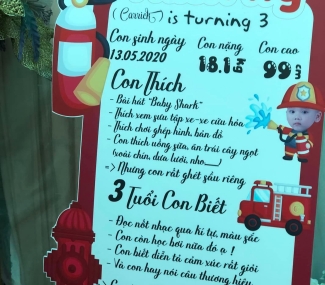 (Carrick) is turning 3
Con sinh ngày
13.05.2020
Con nặng
18.1 kg
Con cao
99 cm
Con Thích
- Bài hát "Baby Shark"
- Thích xem sưu tập xe-xe cứu hỏa
- Thích chơi ghép hình, bản đồ
- Con thích uống sữa, ăn trái cây ngọt
(xoài chín, dưa lưới, nho...)
=> Nhưng con rất ghét sầu riêng
3 Tuổi Con Biết
- Đọc nốt nhạc qua kí tự, màu sắc
- Con còn học bơi nữa đó ạ!
- Con biết diễn tả cảm xúc rất giỏi
- Và con hay nói câu thương hiệu